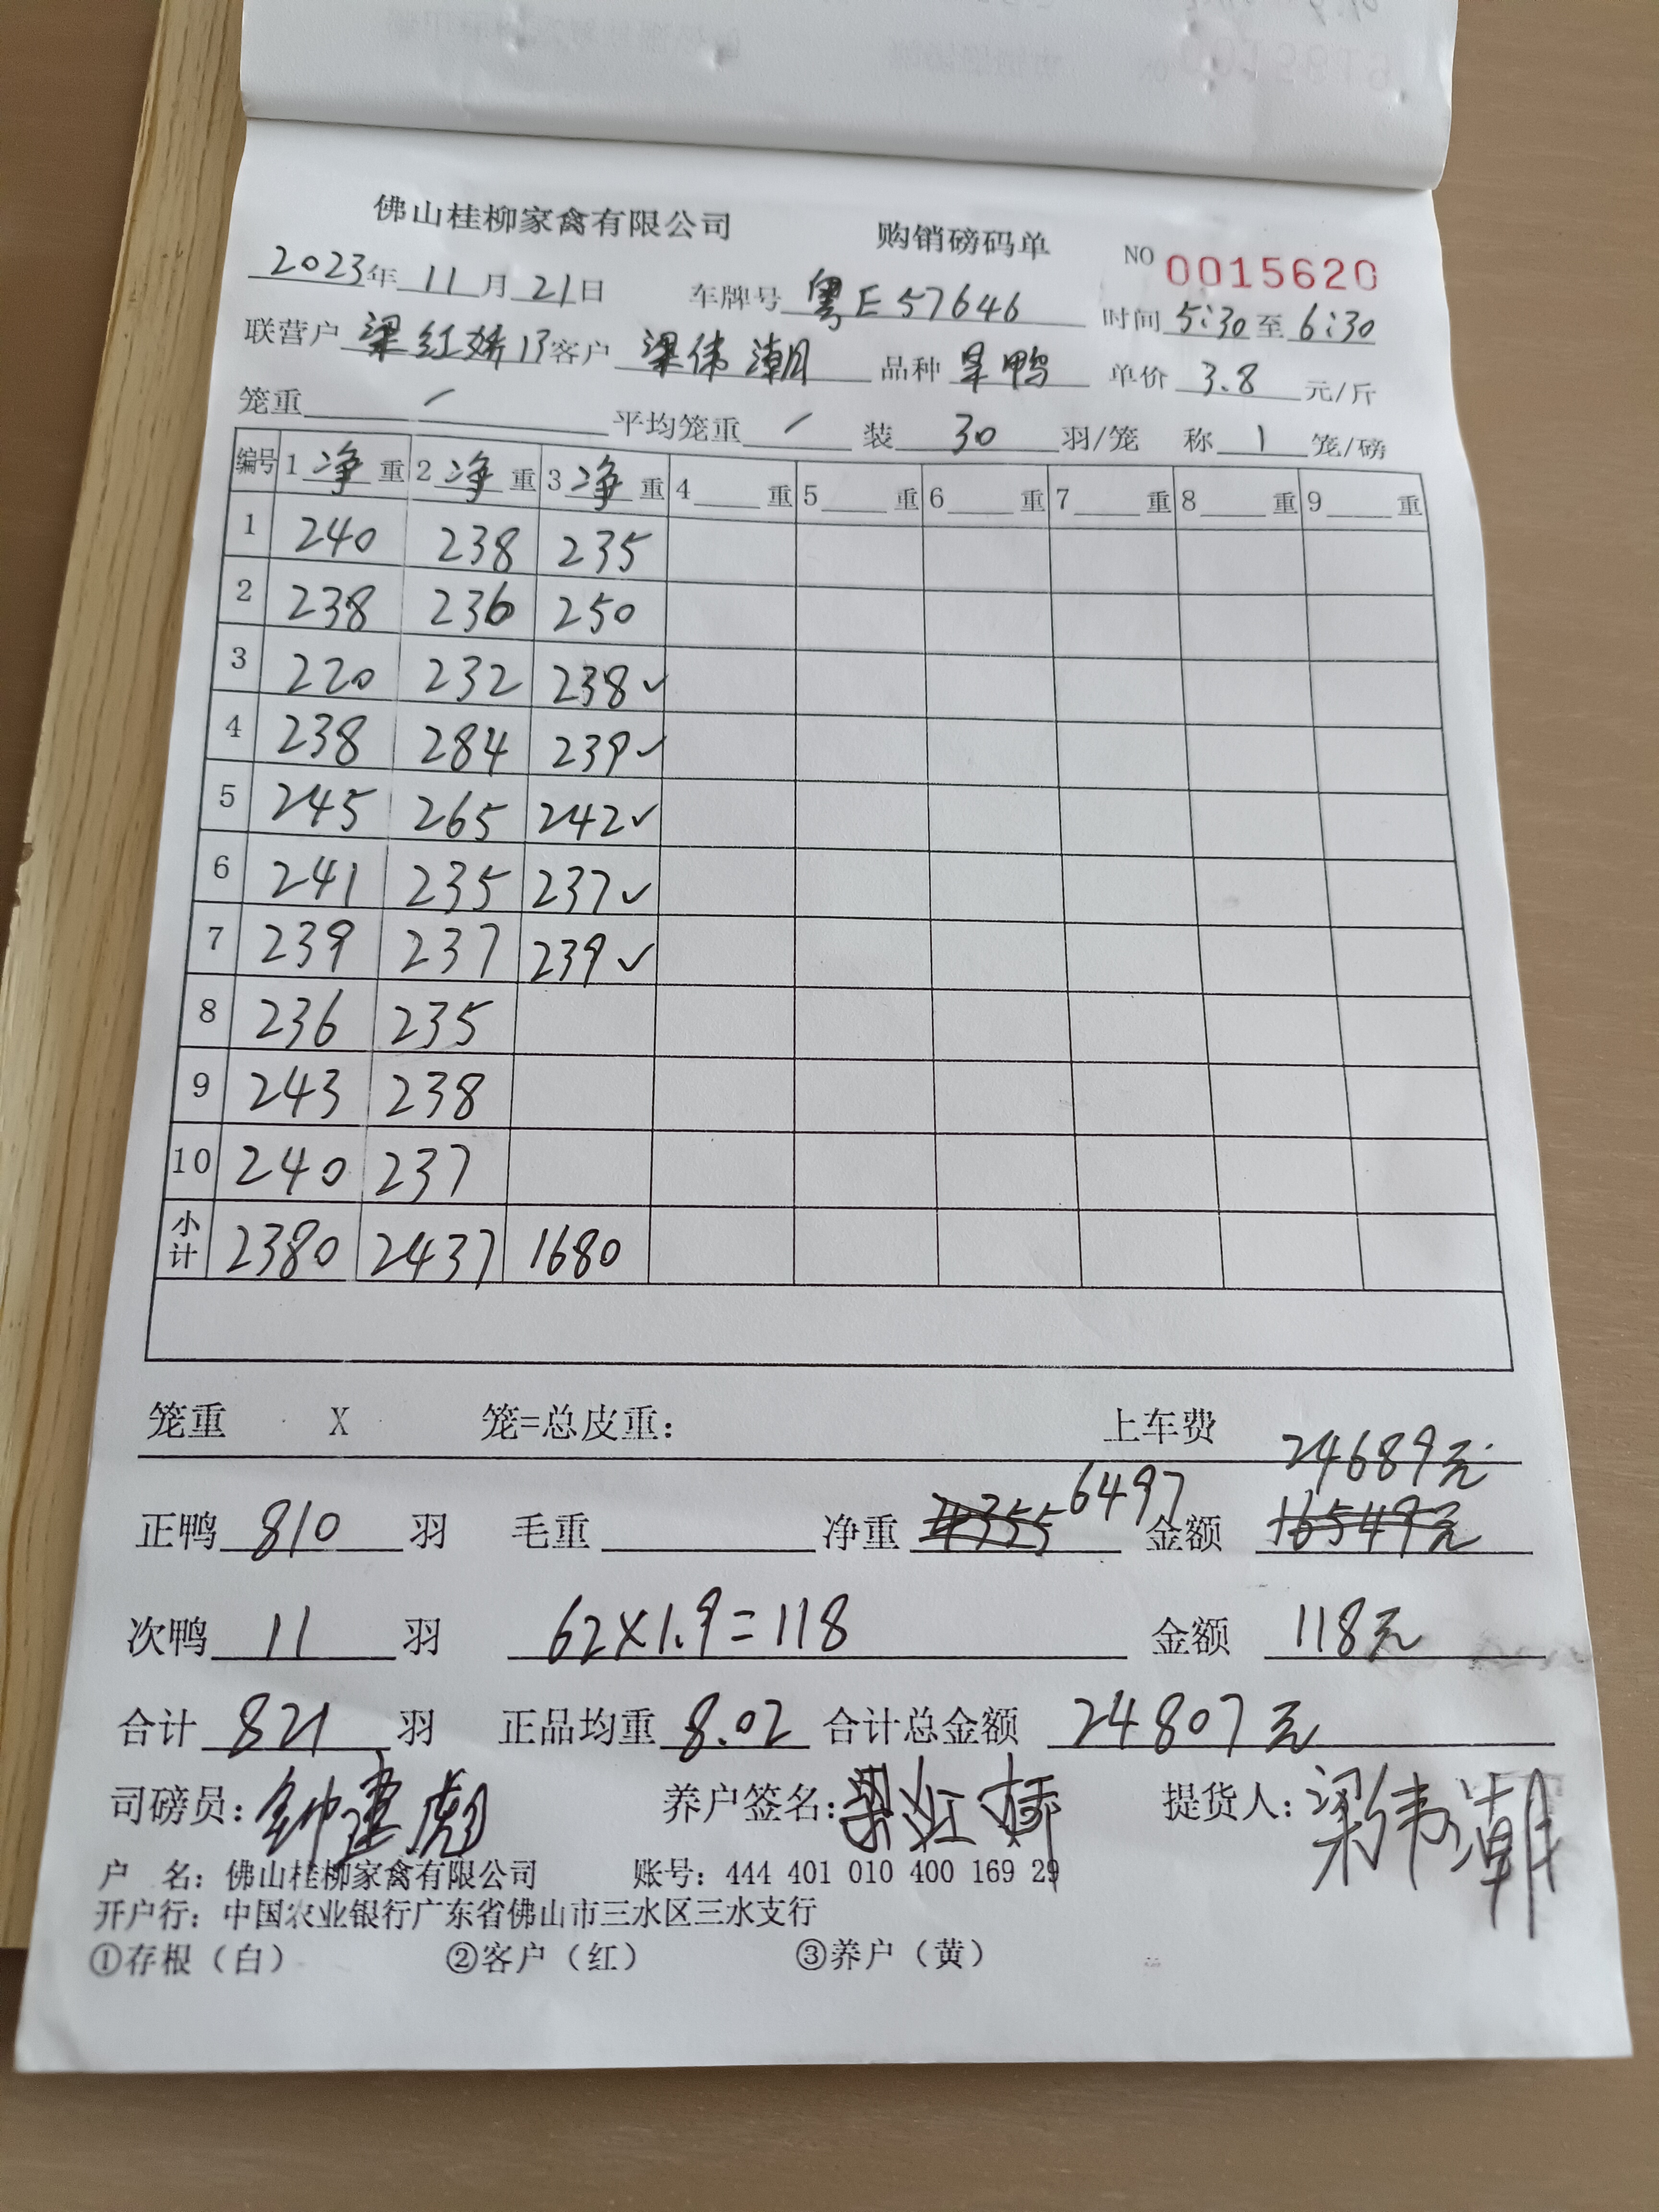 佛山桂柳家禽有限公司 购销磅码单 NO 0015620
2023年11月21日 车牌号 粤E57646 时间 5:30至6:30
联营户 梁红娇13 客户 梁伟潮 品种 旱鸭 单价 3.8 元/斤
笼重 / 平均笼重 / 装 30 羽/笼 称 1 笼/磅
编号 1 净 重 2 净 重 3 净 重 4 重 5 重 6 重 7 重 8 重 9 重
1 240 238 235
2 238 236 250
3 220 232 238✓
4 238 284 239✓
5 245 265 242✓
6 241 235 237✓
7 239 237 239✓
8 236 235
9 243 238
10 240 237
小计 2380 2437 1680
笼重 X 笼=总皮重: 上车费
24689元
正鸭 810 羽 毛重 净重 6497 金额 16549元
次鸭 11 羽 62×1.9=118 金额 118元
合计 821 羽 正品均重 8.02 合计总金额 24807元
司磅员: 钟建彪 养户签名: 梁红娇 提货人: 梁伟潮
户 名: 佛山桂柳家禽有限公司 账号: 444 401 010 400 169 29
开户行: 中国农业银行广东省佛山市三水区三水支行
①存根（白） ②客户（红） ③养户（黄）